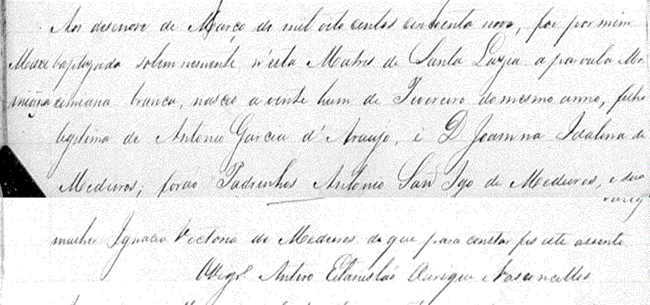 Aos desenove de Março de mil oito centos cincoenta nove, foi por mim
baptizada solemnemente n'esta Matris de Santa Luzia a parvula Ma
branca, nasceo a vinte hum de Fevereiro do mesmo anno, filha
legitima de Antonio Garcia d'Araujo, e D. Joanna Idalina de
Medeiros; forão Padrinhos Antonio San Tgo de Medeiros, e sua
mulher Ignacia Victoria de Medeiros do que para constar fis este assento
O Vigr.º Antero Estanisláo Ourique e Vasconcellos